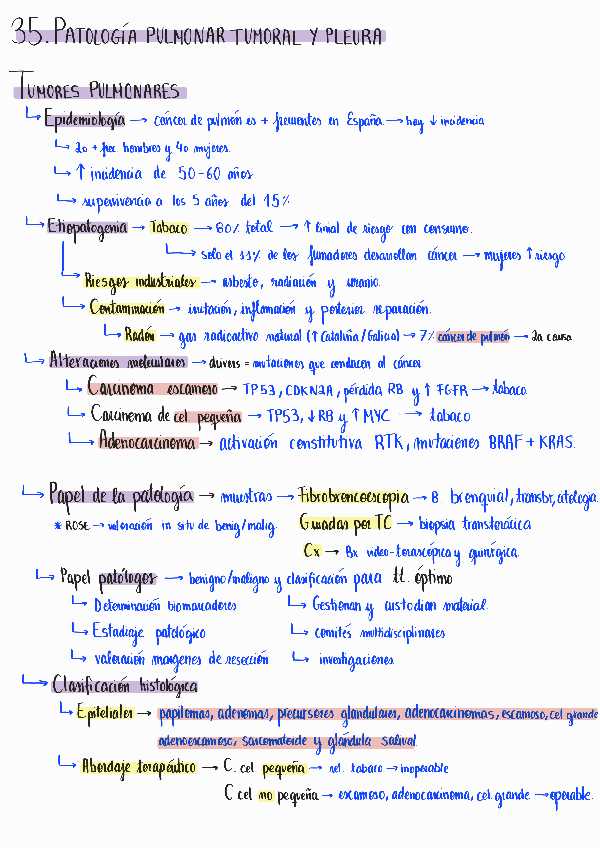 35. PATOLOGÍA PULMONAR TUMORAL Y PLEURA
TUMORES PULMONARES
↳ Epidemiología → cáncer de pulmón es + frecuentes en España. → hoy ↓ incidencia
↳ 2o + frec. hombres y 4o mujeres.
↳ ↑ incidencia de 50-60 años
↳ supervivencia a los 5 años del 15%
↳ Etiopatogenia → Tabaco → 80% total → ↑ lineal de riesgo con consumo.
↳ solo el 11% de los fumadores desarrollan cáncer → mujeres ↑ riesgo
↳ Riesgos industriales → asbesto, radiación y uranio.
↳ Contaminación → irritación, inflamación y posterior reparación.
↳ Radón → gas radioactivo natural (↑ Cataluña/Galicia) → 7% cáncer de pulmón → 2a causa
↳ Alteraciones moleculares → drivers = mutaciones que conducen al cáncer
↳ Carcinoma escamoso → TP53, CDKN2A, pérdida RB y ↑ FGFR → tabaco.
↳ Carcinoma de cel pequeña → TP53, ↓ RB y ↑ MYC → tabaco
↳ Adenocarcinoma → activación constitutiva RTK, mutaciones BRAF + KRAS.
↳ Papel de la patología → muestras → Fibrobroncoescopia → B. bronquial, transbr, citología.
* ROSE → valoración in situ de benig/malig. Guiadas por TC → biopsia transtorática
Cx → Bx video-toracoscópica y quirúrgica.
↳ Papel patólogos → benigno/maligno y clasificación para tt. óptimo
↳ Determinación biomarcadores ↳ Gestionan y custodian material.
↳ Estadiaje patológico ↳ comités multidisciplinares
↳ valoración margenes de resección ↳ investigaciones.
↳ Clasificación histológica
↳ Epiteliales → papilomas, adenomas, precursores glandulares, adenocarcinomas, escamoso, cel grande
adenoescamoso, sarcomatoide y glándula salival.
↳ Abordaje terapéutico → C. cel pequeña → rel. tabaco → inoperable
C cel no pequeña → escamoso, adenocarcinoma, cel. grande → operable.